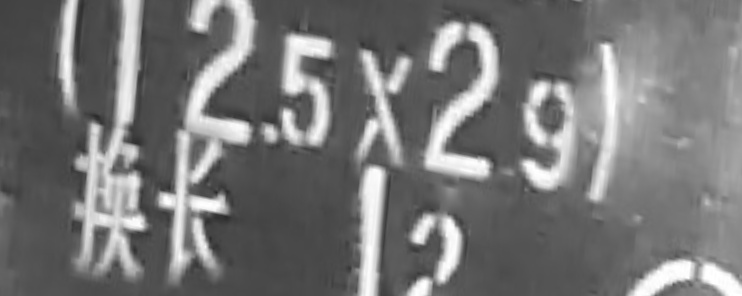 (12.5×2.9)
换长 1.2